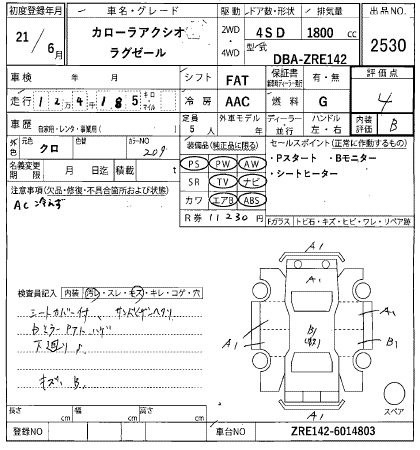 初度登録年月 車名・グレード 駆動 ドア数・形状 排気量 出品NO.
21/6月 カローラアクシオ 2WD 4SD 1800cc 2530
ラグゼール 4WD 型式 DBA-ZRE142
車検 年 月 シフト FAT 保証書 有・無 評価点
4
走行 124,185 キロ マイル 冷房 AAC 燃料 G
車歴 自家用・レンタ・事業用( ) 定員 5人 外車モデル年 年 ディーラー 並行 ハンドル 左・右 内装評価 B
外色 元色 クロ 色替 カラーNO 209 装備品(純正品に限る) セールスポイント(正常に作動するもの)
PS PW AW ・Pスタート ・Bモニター
名義変更期限 月 日迄 積載 t SR TV ナビ ・シートヒーター
注意事項(欠品・修復・不具合箇所および状態) カワ エアB ABS
AC冷えず R券 11230円 Fガラス トビ石・キズ・ヒビ・ワレ・リペア跡
A1
検査員記入 内装 汚れ・スレ・キズ・キレ・コゲ・穴
シートカバー付
A1
A1 B1 B1
下廻り
キズ B1
A1
スペア
長さ cm 幅 cm 高さ cm
登録NO 車台NO ZRE142-6014803